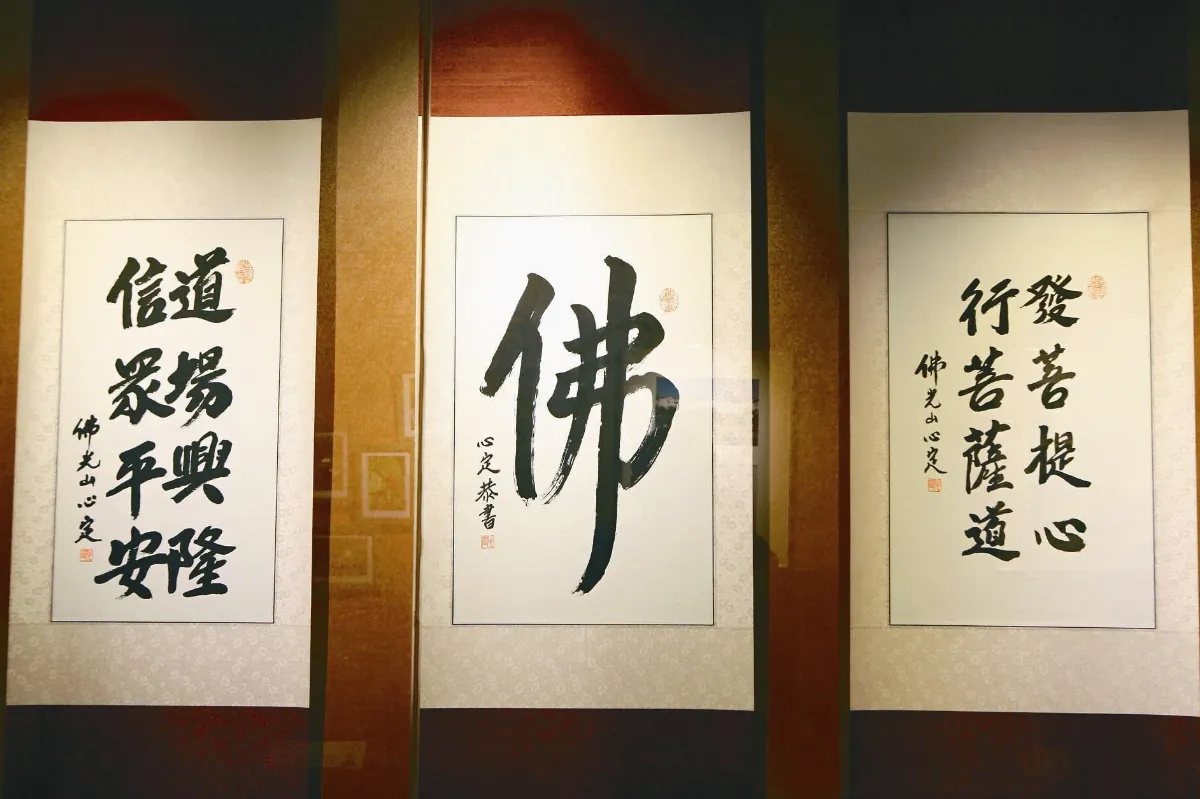 發菩提心
行菩薩道
佛光山心定
佛
心定恭書
道場興隆
信眾平安
佛光山心定